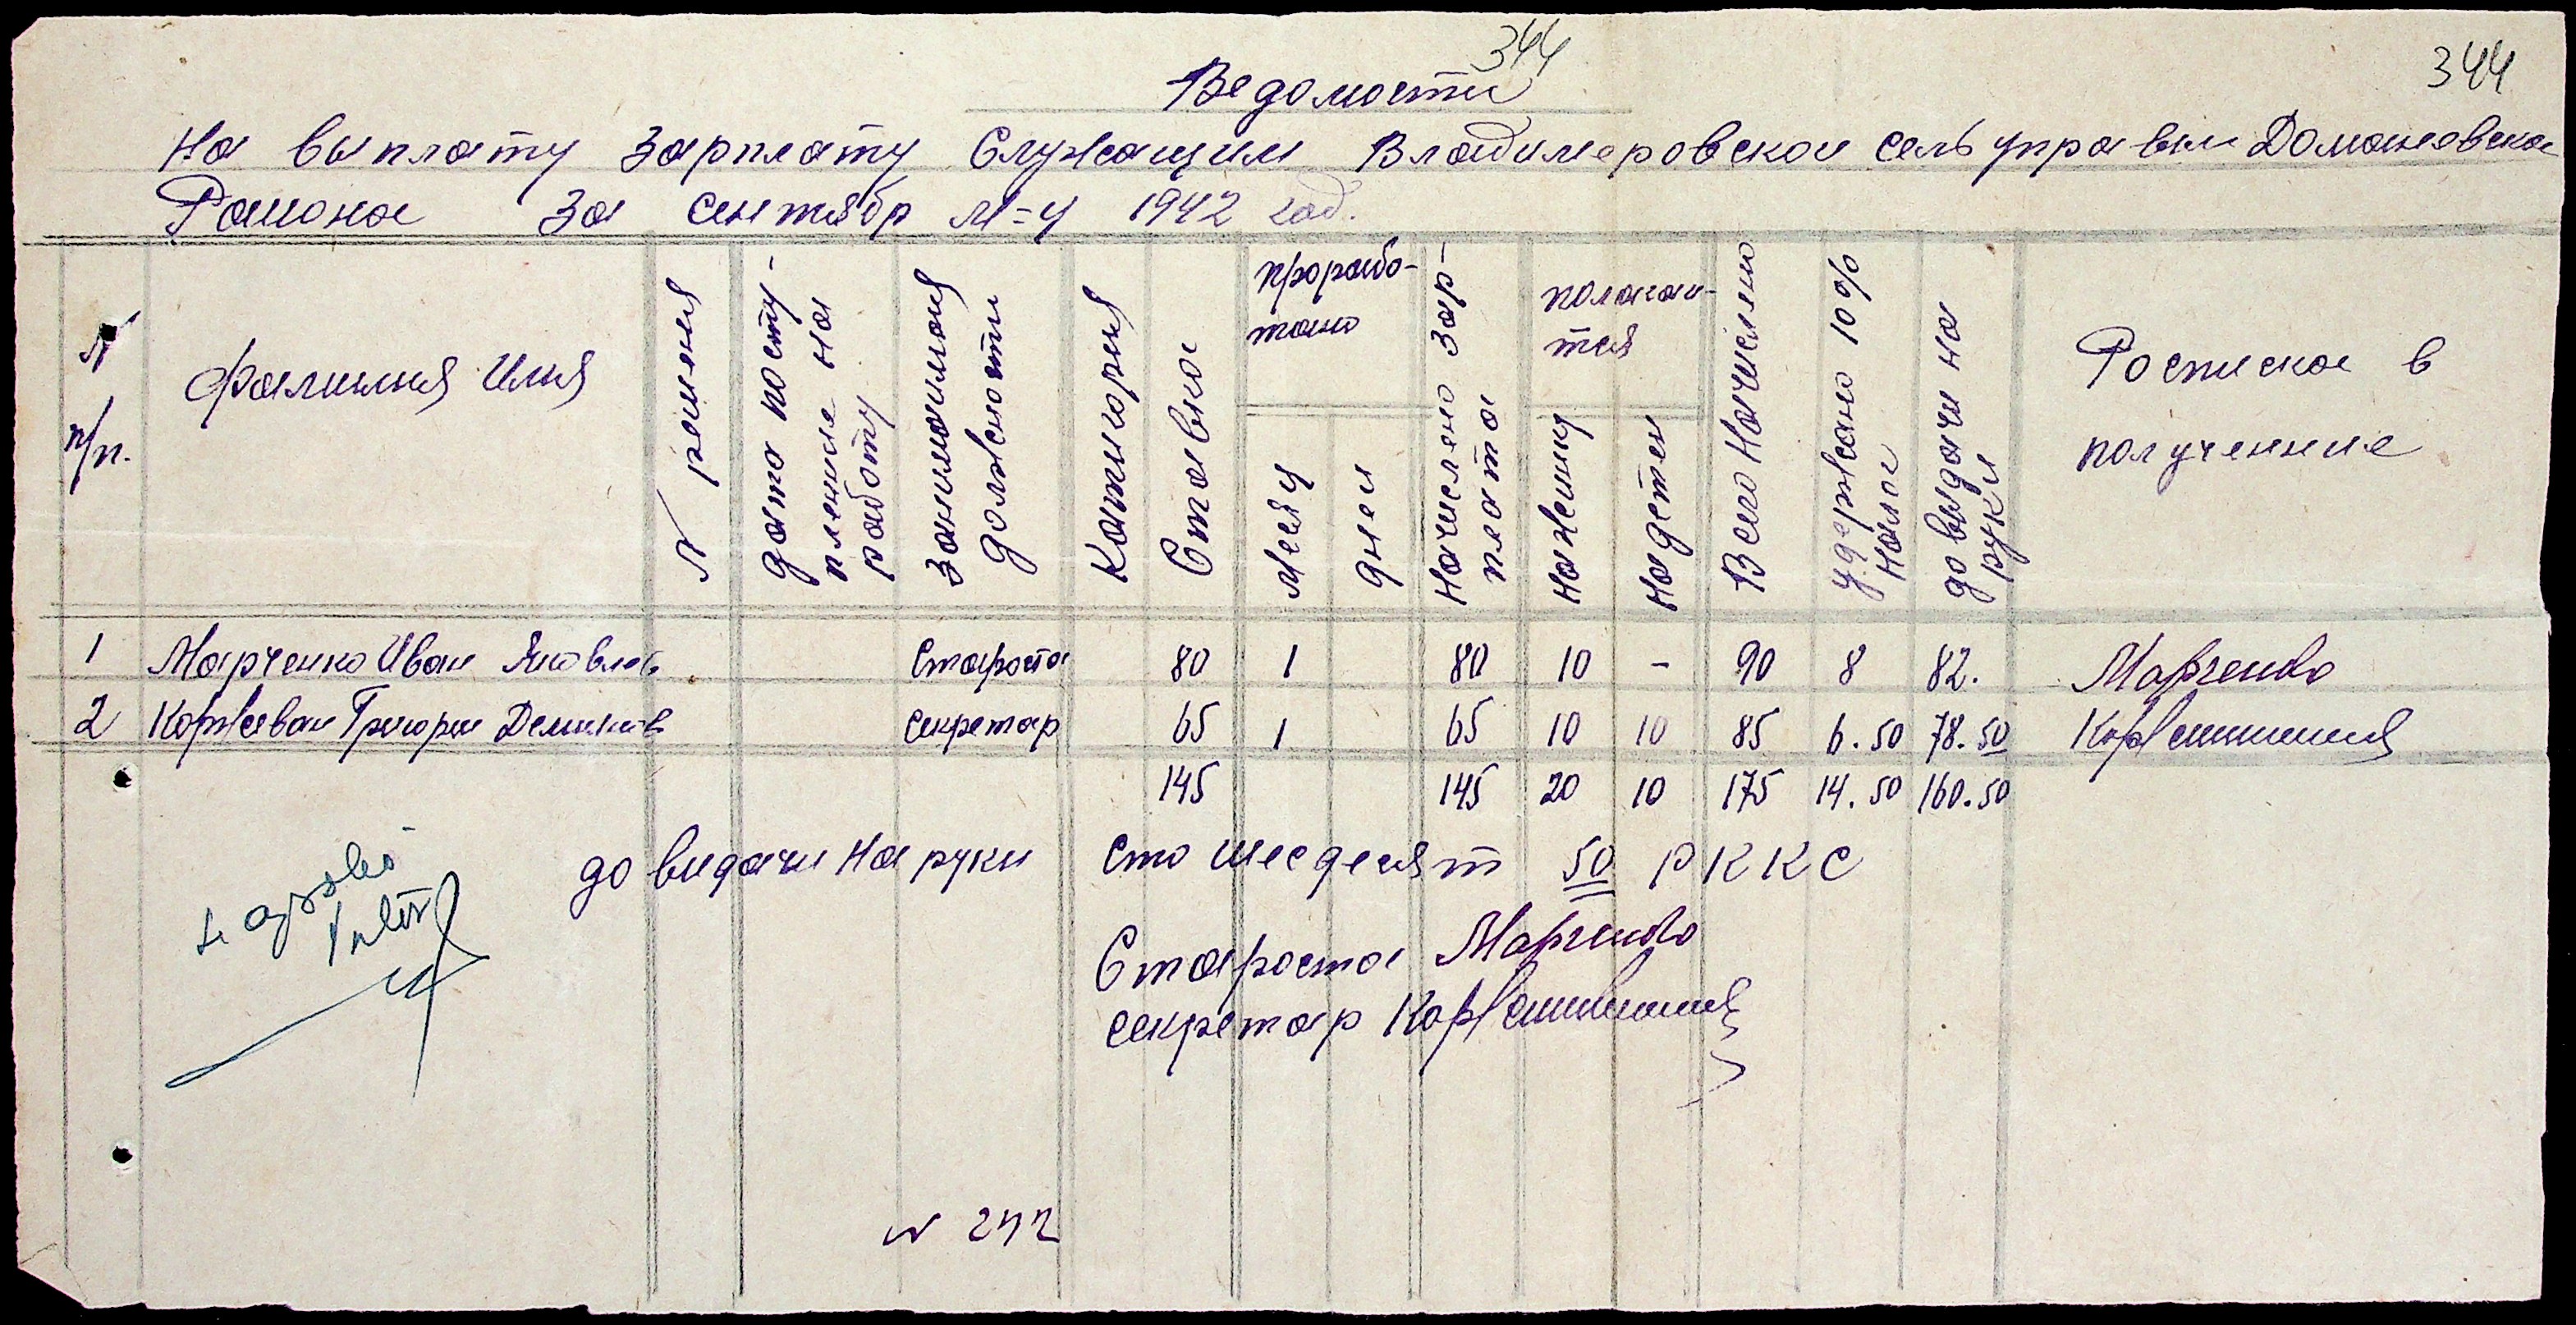 344
344
Ведомости
На выплату зарплату Служащим Владимеровской сельуправы Доманевска
Района за сентябр м=ц 1942 год.
№ п/п.
Фамилия Имя
№ решения
дата поступление на работу
занимаимая должности
Категория
Ставка
прорабо-
тано
Месяц
дней
Начислено зар-
плата
полагаи-
тся
на жещину
на детей
Всего Начислено
удержано 10%
налог
до выдачи на
руки
Росписка в
полученние
1 Марченко Иван Яковлев Староста 80 1 80 10 - 90 8 82. Марченко
2 Коржеван Григорий Секретар 65 1 65 10 10 85 6.50 78.50
145 145 20 10 175 14.50 160.50
до видачи на руки сто шесдесят 50 РККС
Староста Марченко
секретар
№ 242